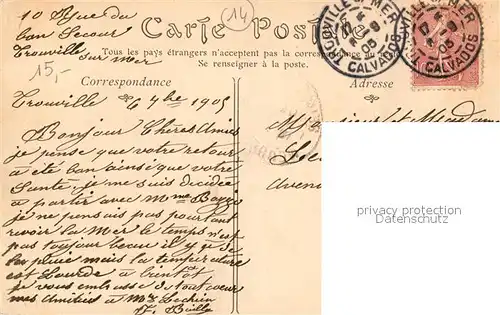 10 Rue du
bon Secour
Trouville
sur mer
15,-
14
Carte Postale
Tous les pays étrangers n'acceptent pas la correspondance au
Se renseigner à la poste.
TROUVILLE S. MER
CALVADOS
05
VILLE S. MER
CALVADOS
05
Correspondance
Adresse
Trouville 6 7bre 1905
Bonjour Chères Amies
je pense que votre retour
a été bon ainsi que votre
Santé, je me suis décidée
a partir avec Mme
je ne pensais pas pourtant
revoir la Mer le temps n'est
pas toujour beau il y a de
la pluie mais la température
est Lourde a bientôt
je vous embrasse de tout coeur
mes Amitiés a Mr Lechien
Monsieur et Madame
Le
Avenue
privacy protection
Datenschutz